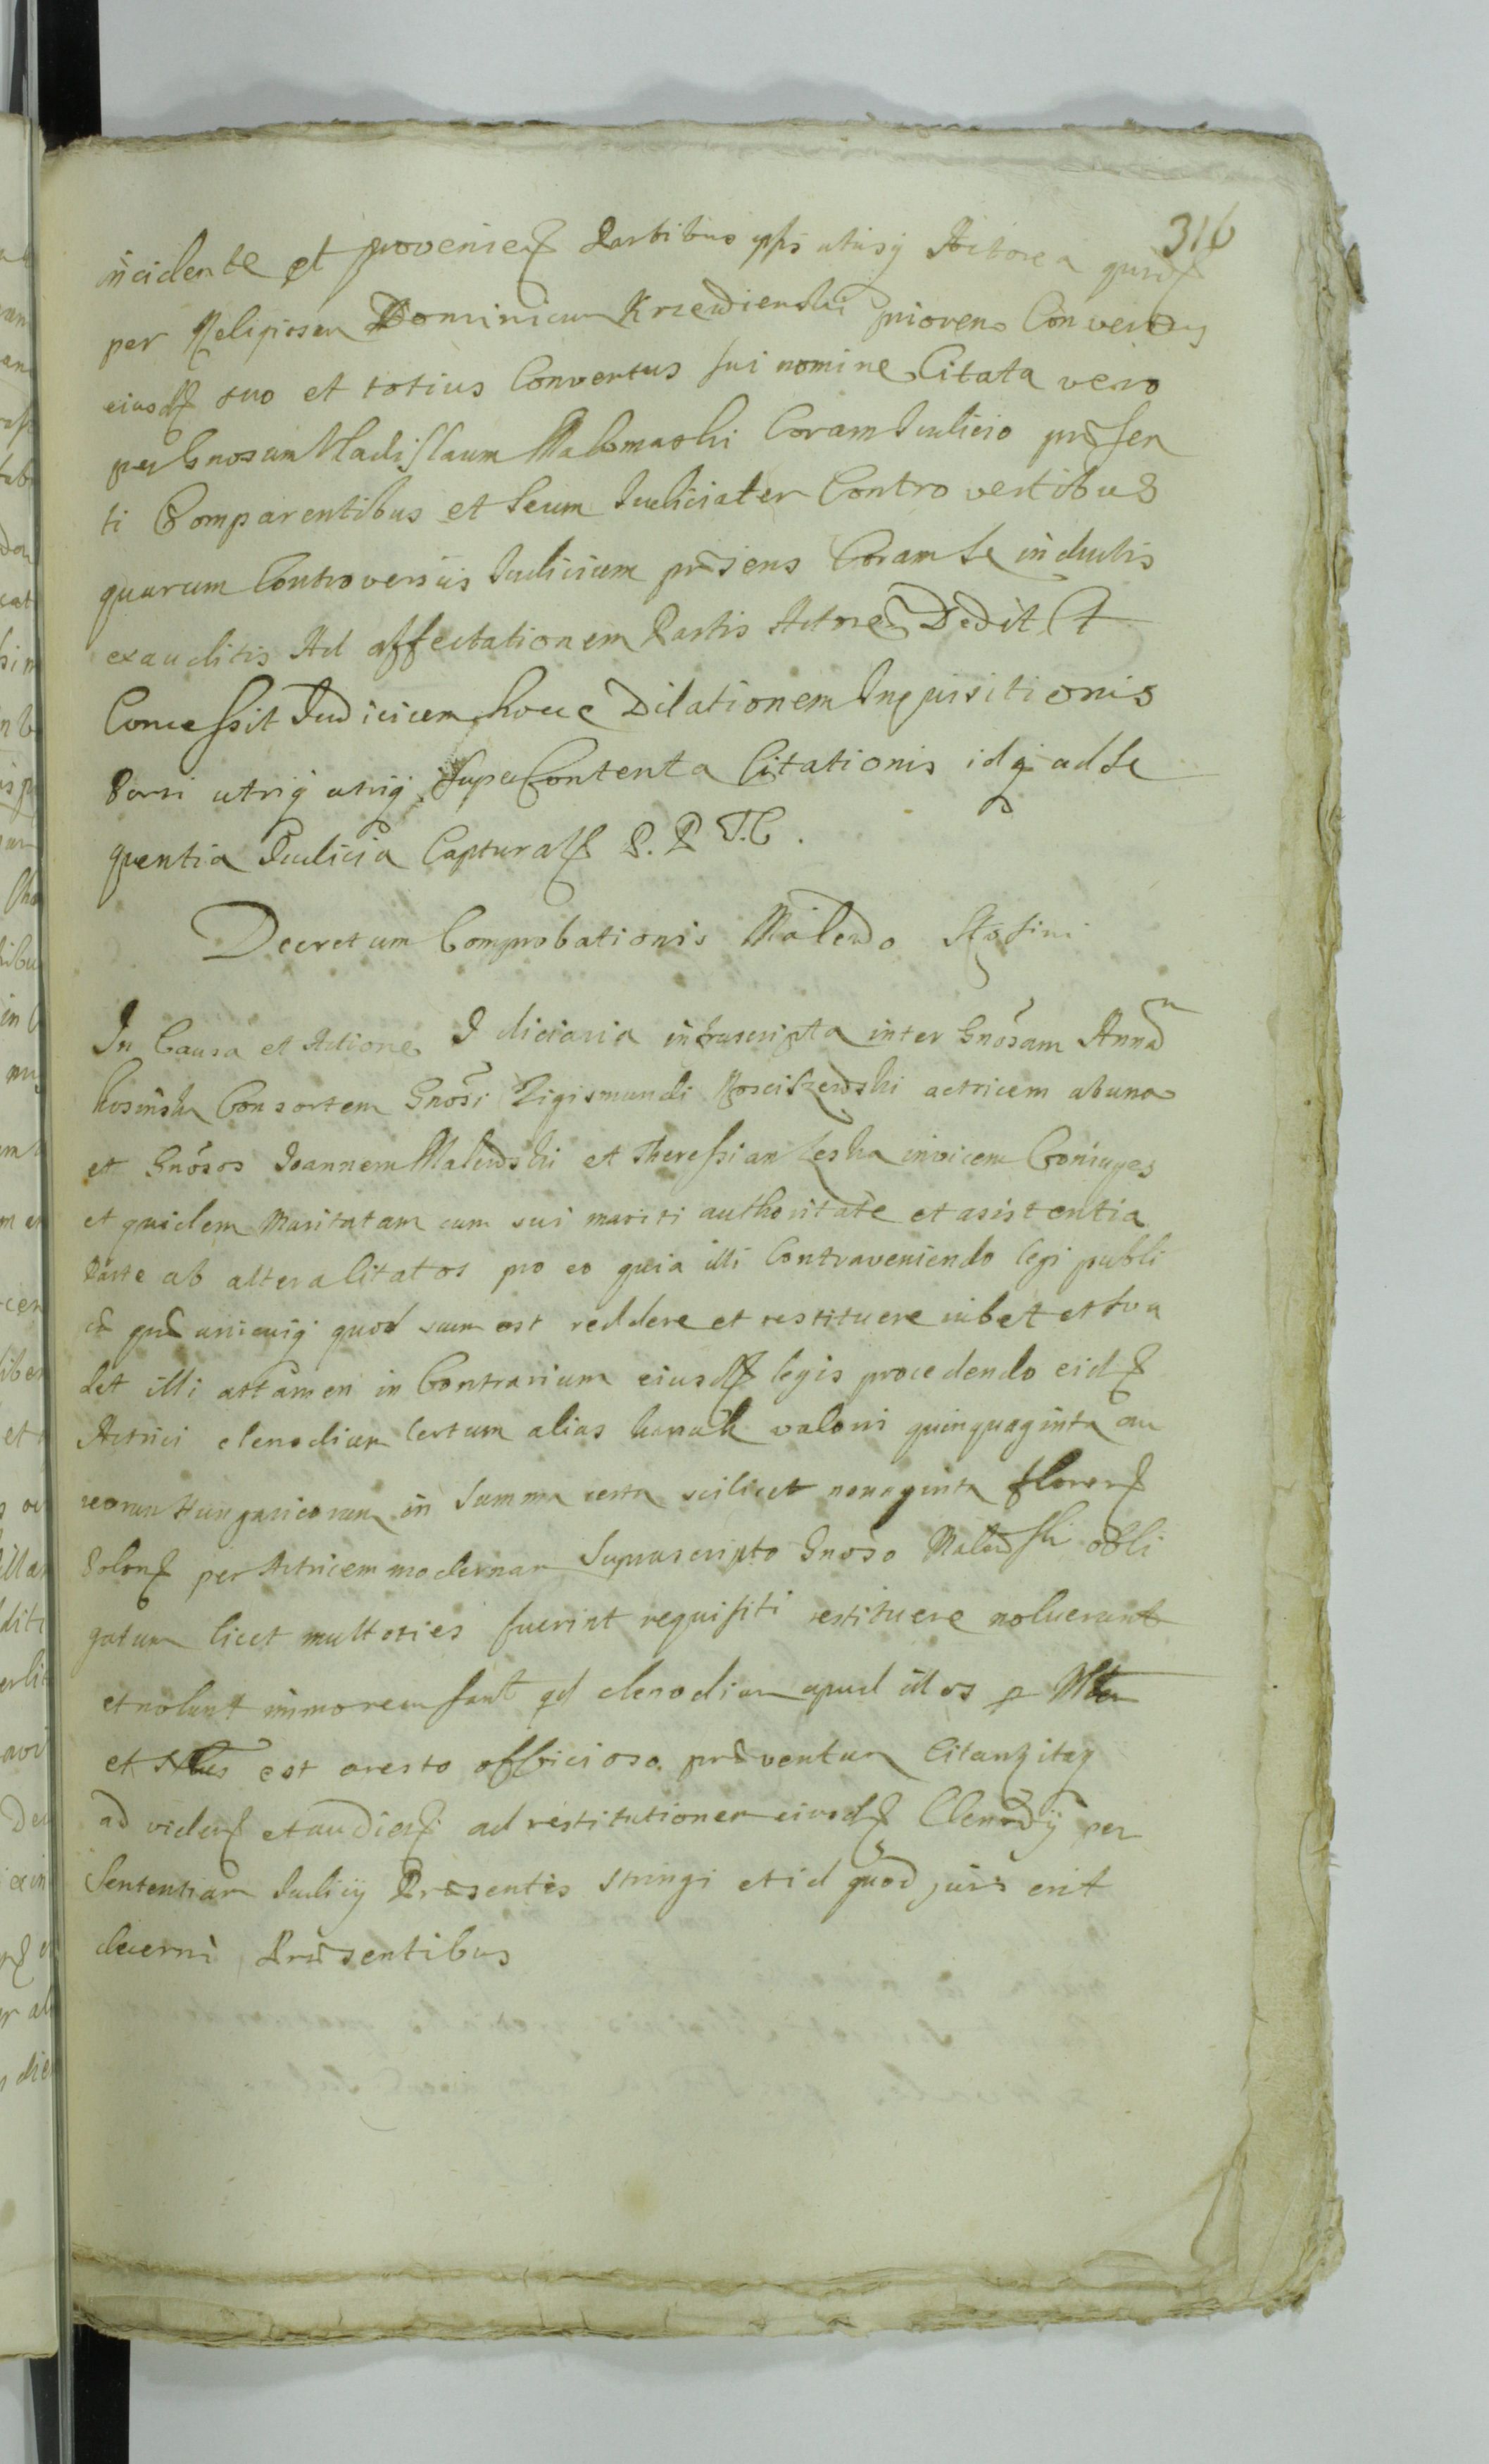 316
incidente et provenien Partibus ipsis utrisq Actorea quid
per Religiosum Dominicum Krzewienski priorem Conventus
eiusd suo et totius Conventus sui nomine Citata vero
per Gnosum Vladislaum Malomaski Coram Iudicio præsen
ti Comparentibus et Secum Iudicialer Controvertibus
quarum Controversiis Iudicium præsens Coram se inductis
exauditis Ad affectationem Partis Actoreæ Dedit Et
Concessit Iudicium hocce Dilationem Inquisitionis
Parti utriq utriq super Contenta Citationis idq ad se
quentia Iudicia Captural P. P. T. C.
Decretum Comprobationis Malewo
In Causa et Actione I diciaria infrascripta inter Gnosam Annam
kosinska Consortem Gnosi Zigismundi Kosciszewski actricem ab una
et Gnosos Joannem Malewski et Theressiam Leska invicem Coniuges
et quidem Maritatam cum sui mariti authoritate et asistentia
Parte ab altera Citatos pro eo quia illi Contraveniendo legi publi
cæ quæ unicuiq quod suum est reddere et restituere iubet et sua
det illi attamen in Contrarium eiusd legis procedendo eid
Actrici clenodium Certum alias kanak valoris quinquaginta au
reorum Hungaricorum in Summa certa scilicet nonaginta floren
Polon per Actricem modernam Suprascripto Gnoso Malewski obli
gatum licet multoties fuerint requisiti restituere noluerunt
et nolunt immo reursant qd clenodium apud illos
et est aresto officioso præventum Citantq itaq
ad viden et audien ad restitutionem eiusd Clenodij per
Sententiam Iudicij Præsentis stringi et id quod juris erit
decerni Præsentibus